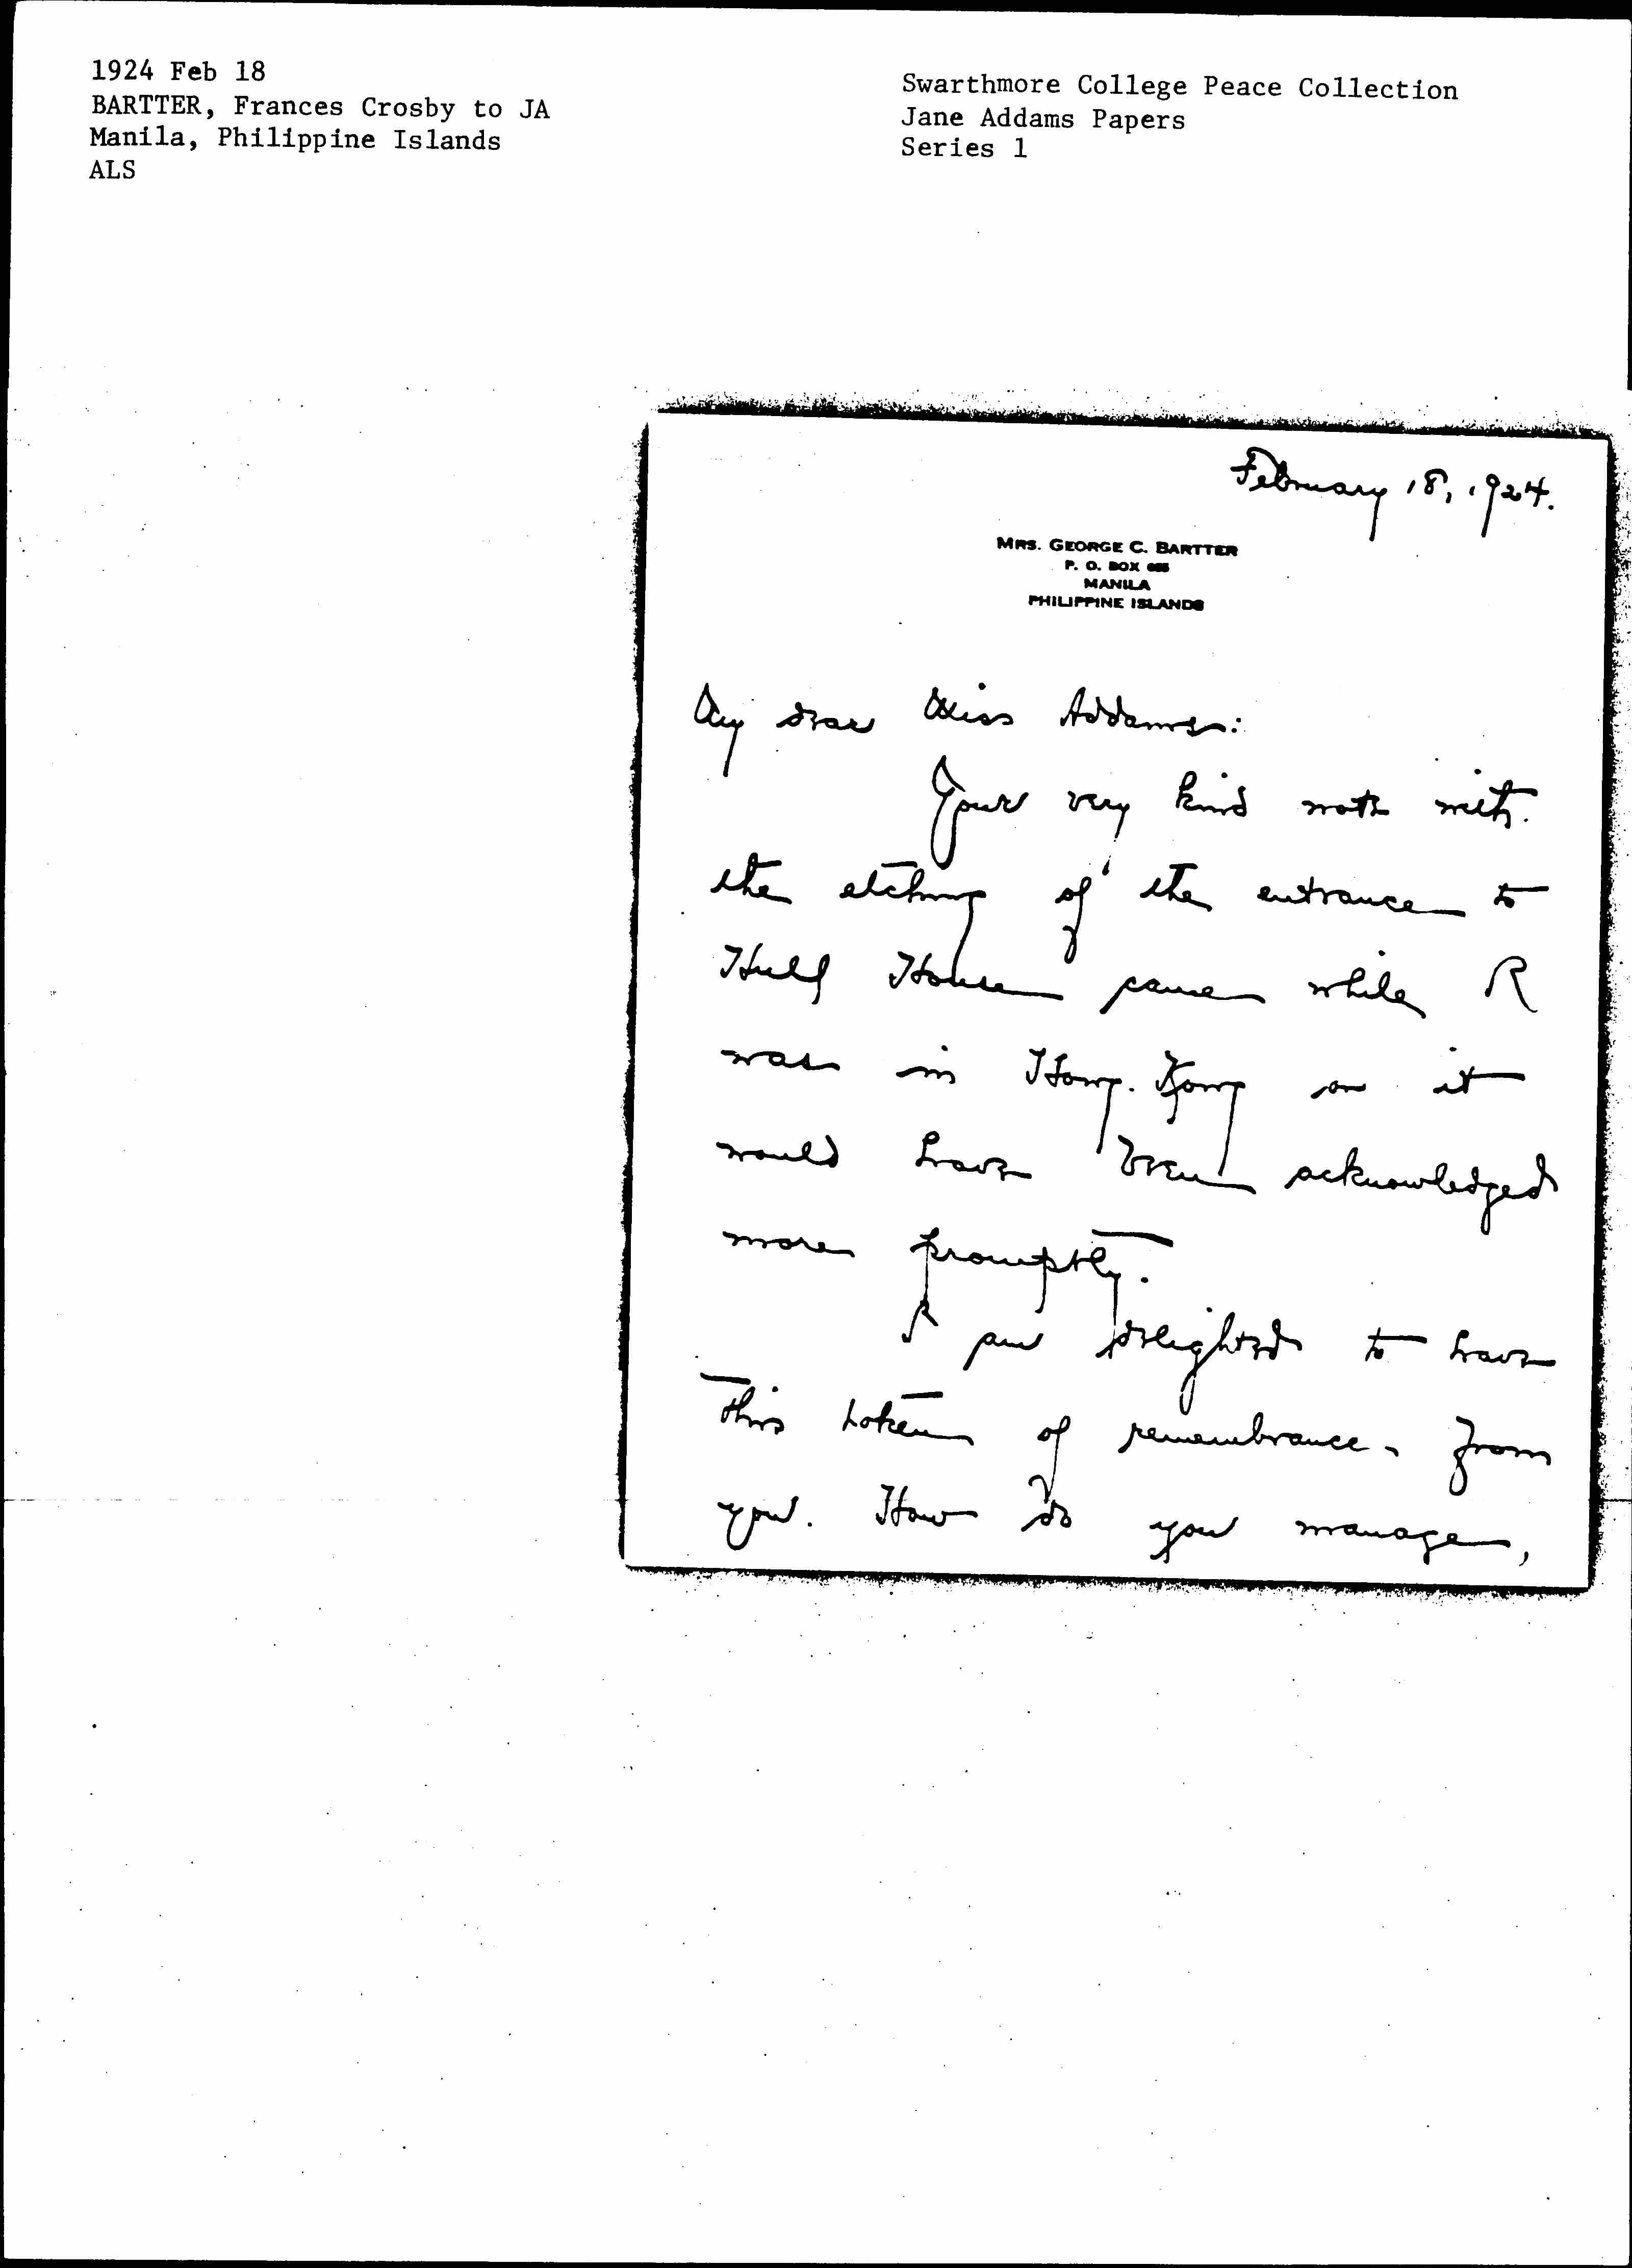 1924 Feb 18
BARTTER, Frances Crosby to JA
Manila, Philippine Islands
ALS
Swarthmore College Peace Collection
Jane Addams Papers
Series 1
February 18, 1924.
MRS. GEORGE C. BARTTER
P. O. BOX
MANILA
PHILIPPINE ISLANDS
My dear Miss Addams:
Your very kind note with
the etching of the entrance to
Hull House came while I
was in Hong. Kong or it
would have been acknowledged
more promptly.
I am delighted to have
this token of remembrance - from
you. How do you manage,